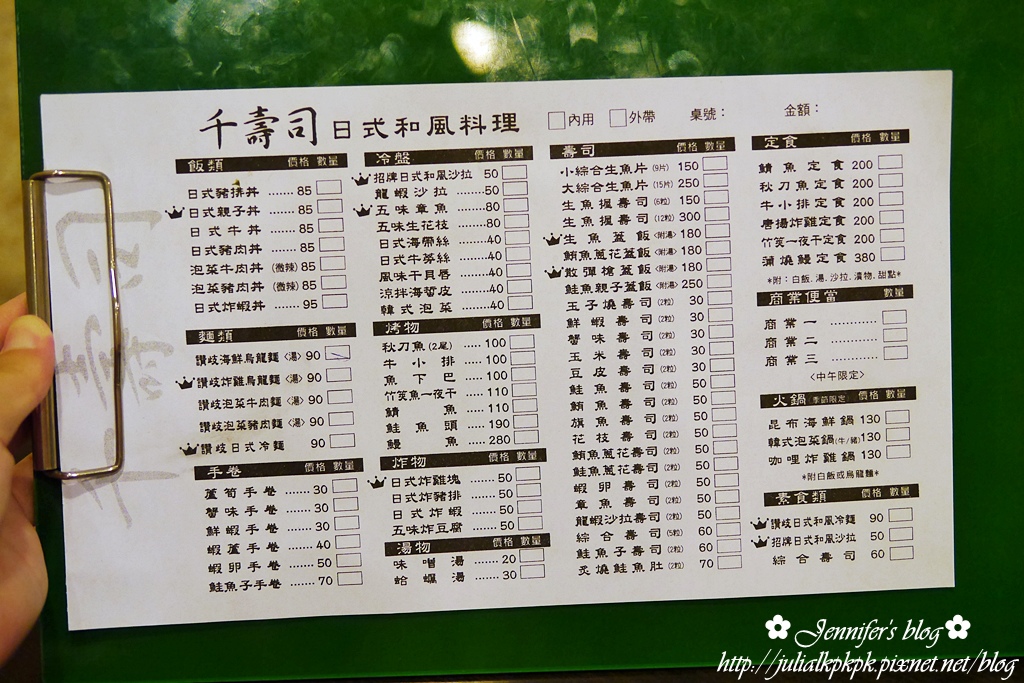 千壽司 日式和風料理
內用 外帶 桌號： 金額：
飯類 價格 數量
日式豬排丼 ....... 85
日式親子丼 ....... 85
日式牛丼 ....... 85
日式豬肉丼 ....... 85
泡菜牛肉丼 (微辣) 85
泡菜豬肉丼 (微辣) 85
日式炸蝦丼 ....... 95
麵類 價格 數量
讚岐海鮮烏龍麵〈湯〉 90
讚岐炸雞烏龍麵〈湯〉 90
讚岐泡菜牛肉麵〈湯〉 90
讚岐泡菜豬肉麵〈湯〉 90
讚岐日式冷麵 90
手卷 價格 數量
蘆筍手卷 ....... 30
蟹味手卷 ....... 30
鮮蝦手卷 ....... 30
蝦蘆手卷 ....... 40
蝦卵手卷 ....... 50
鮭魚子手卷 ....... 70
冷盤 價格 數量
招牌日式和風沙拉 50
龍蝦沙拉 ....... 50
五味章魚 ....... 80
五味生花枝 ....... 80
日式海帶絲 ....... 40
日式牛蒡絲 ....... 40
風味干貝唇 ....... 40
涼拌海蜇皮 ....... 40
韓式泡菜 ....... 40
烤物 價格 數量
秋刀魚(2尾) ..... 100
牛小排 ..... 100
魚下巴 ..... 100
竹筴魚一夜干 ..... 110
鯖魚 ..... 110
鮭魚頭 ..... 190
鰻魚 ..... 280
炸物 價格 數量
日式炸雞塊 ..... 50
日式炸豬排 ..... 50
日式炸蝦 ..... 50
五味炸豆腐 ..... 50
湯物 價格 數量
味噌湯 ..... 20
蛤蠣湯 ..... 30
壽司 價格 數量
小綜合生魚片 (9片) 150
大綜合生魚片 (15片) 250
生魚握壽司 (6粒) 150
生魚握壽司 (12粒) 300
生魚蓋飯〈附湯〉 180
鮪魚蔥花蓋飯〈附湯〉 180
散彈槍蓋飯〈附湯〉 180
鮭魚親子蓋飯〈附湯〉 250
玉子燒壽司 (2粒) 30
鮮蝦壽司 (2粒) 30
蟹味壽司 (2粒) 30
玉米壽司 (2粒) 30
豆皮壽司 (2粒) 30
鮭魚壽司 (2粒) 50
鮪魚壽司 (2粒) 50
旗魚壽司 (2粒) 50
花枝壽司 (2粒) 50
鮪魚蔥花壽司 (2粒) 50
鮭魚蔥花壽司 (2粒) 50
蝦卵壽司 (2粒) 50
章魚壽司 (2粒) 50
龍蝦沙拉壽司 (2粒) 50
綜合壽司 (5粒) 60
鮭魚子壽司 (2粒) 60
炙燒鮭魚肚 (2粒) 70
定食 價格 數量
鯖魚定食 200
秋刀魚定食 200
牛小排定食 200
唐揚炸雞定食 200
竹筴一夜干定食 200
蒲燒鰻定食 380
*附：白飯.湯.沙拉.漬物.甜點*
商業便當 數量
商業一 ............
商業二 ............
商業三 ............
〈中午限定〉
火鍋 季節限定 價格 數量
昆布海鮮鍋 130
韓式泡菜鍋(牛/豬) 130
咖哩炸雞鍋 130
*附白飯或烏龍麵*
素食類 價格 數量
讚岐日式和風冷麵 90
招牌日式和風沙拉 50
綜合壽司 60
千壽司
Jennifer's blog
http://julialkpkpk.pixnet.net/blog